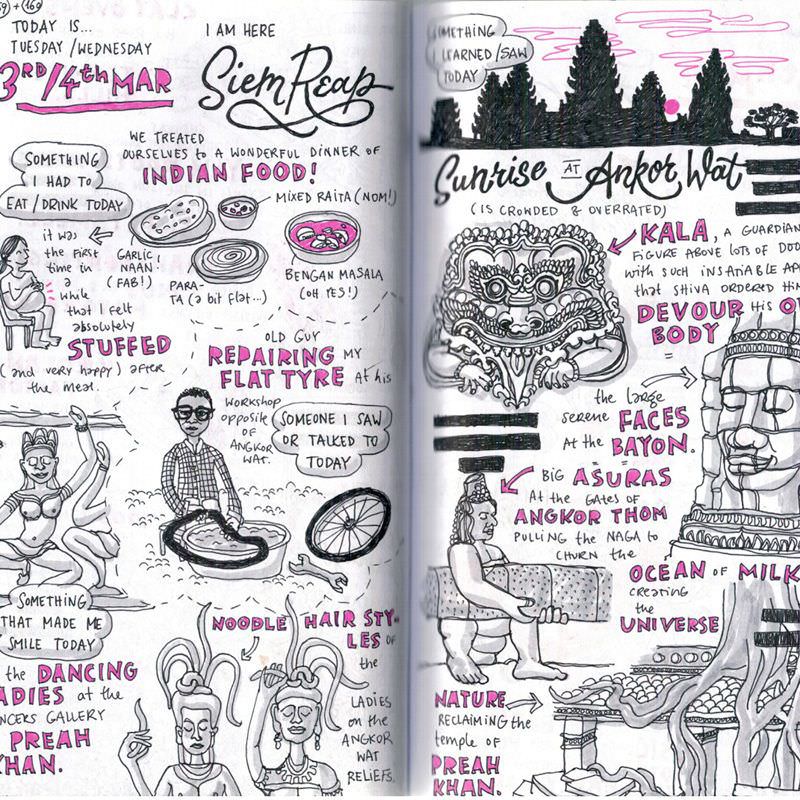 TODAY IS...
TUESDAY/WEDNESDAY
3RD/4th MAR
I AM HERE
Siem Reap
SOMETHING
I HAD TO
EAT/DRINK TODAY
WE TREATED
OURSELVES to A WONDERFUL DINNER OF
INDIAN FOOD!
MIXED RAITA (NOM!)
GARLIC
NAAN
(FAB!)
PARA-
TA (a bit flat...)
BENGAN MASALA
(OH YES!)
it was
the first
time in
a
while
that I felt
absolutely
STUFFED
(and very happy) after
the meal.
OLD GUY
REPAIRING MY
FLAT TYRE At his
WORKSHOP
opposite
OF
ANGKOR
WAT.
SOMEONE I SAW
OR TALKED TO
TODAY
SOMETHING
THAT MADE ME
SMILE TODAY
the DANCING
ADIES at the
NCERS GALLERY
PREAH
KHAN.
NOODLE HAIR STY-
LES OF
the
LADIES
on the
ANGKOR
WAT
RELIEFS.
SOMETHING
I LEARNED/SAW
TODAY
Sunrise AT Ankor Wat
(IS CROWDED & OVERRATED)
KALA, A GUARDIAN
FIGURE ABOVE LOTS OF DOO
with SUCH INSATIABLE AP
that SHIVA ORDERED HIM
DEVOUR HIS O
BODY
the large
serene FACES
At the BAYON.
BIG ASURAS
At the GATES OF
ANGKOR THOM
PULLING the NAGA to
CHURN the
OCEAN OF MILK
creating
the
UNIVERSE
NATURE
RECLAIMING the
temple OF
PREAH
KHAN.